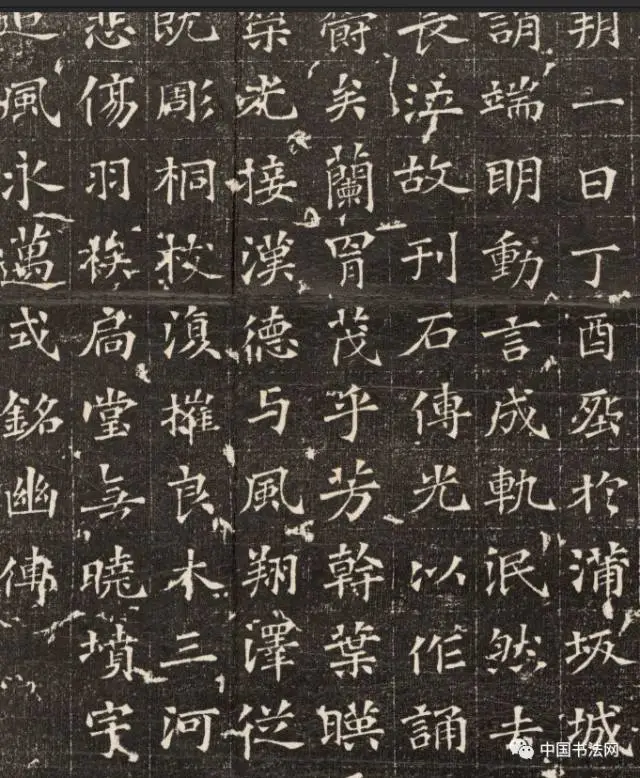 朔一日丁酉塟於蒲坂城
誚端明動言成軌泯然去
長泣故刊石傳光以作誦
欝矣蘭胄茂乎芳幹葉暎
榮光接漢德与風翔澤從
既彫桐枝復摧良木三河
悲傷羽族扃堂無曉墳宇
追風永邁式銘幽傳
中国书法网